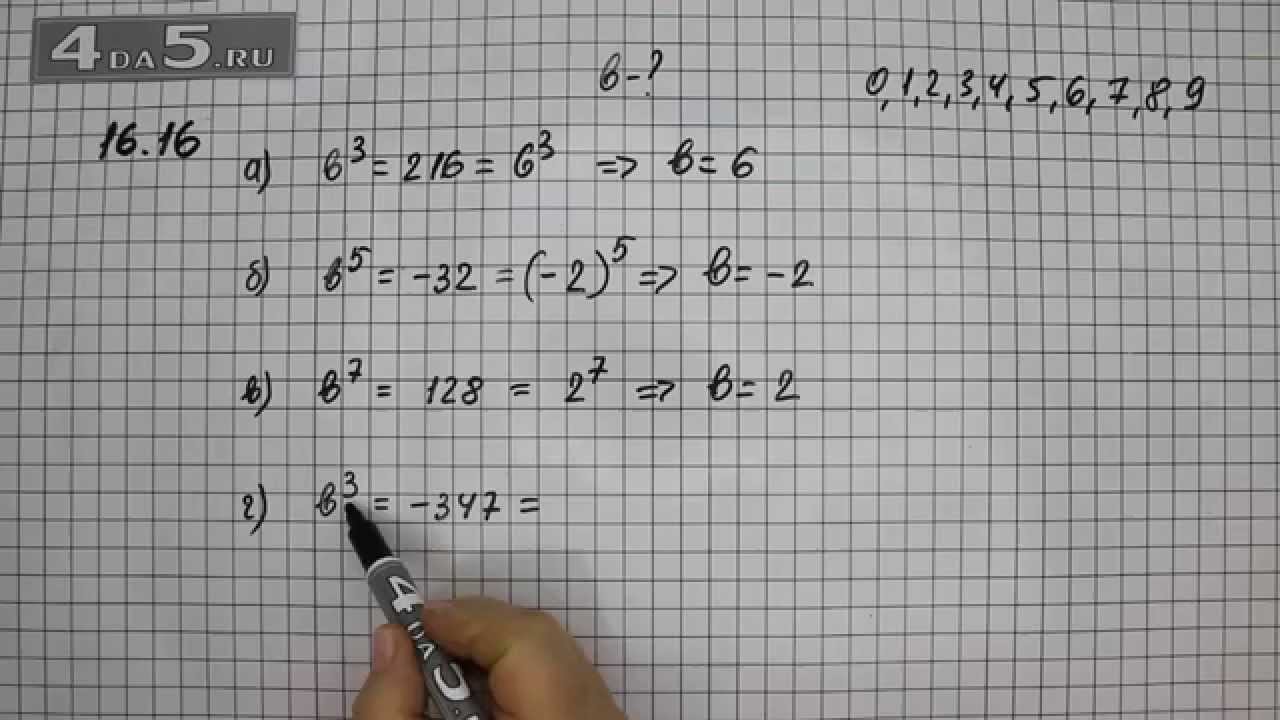 4DA5.RU
в-?
0,1,2,3,4,5,6,7,8,9
16.16
а) в³ = 216 = 6³ => в = 6
б) в⁵ = -32 = (-2)⁵ => в = -2
в) в⁷ = 128 = 2⁷ => в = 2
г) в³ = -347 =
4DA5